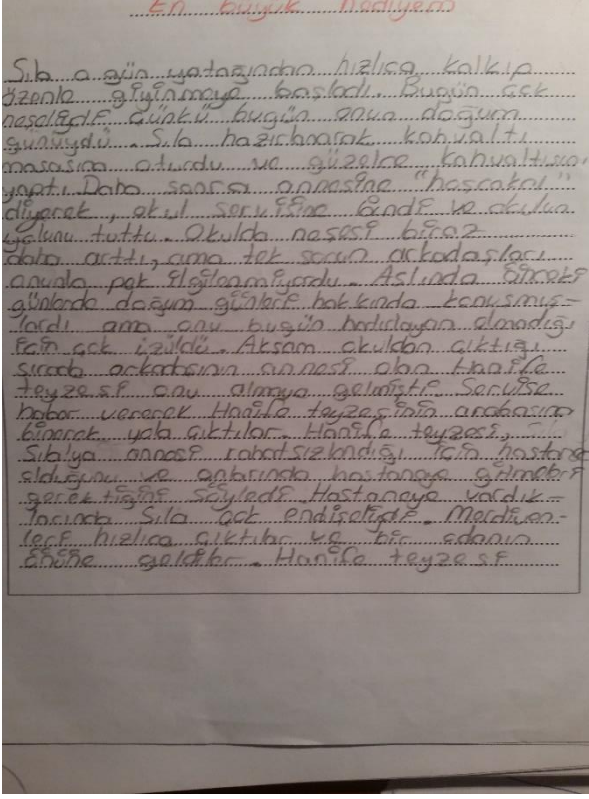 En büyük hediyem
Sıla o gün yatağından hızlıca kalkıp
özenle giyinmeye başladı. Bugün çok
neşeliydi çünkü bugün onun doğum
günüydü. Sıla hazırlanarak kahvaltı
masasına oturdu ve güzelce kahvaltısını
yaptı. Daha sonra annesine "hoşçakal"
diyerek, okul servisine bindi ve okulun
yolunu tuttu. Okulda neşesi biraz
daha arttı, ama tek sorun arkadaşları
onunla pek ilgilenmiyordu. Aslında önceki
günlerde doğum günleri hakkında konuşmuş-
lardı ama onu bugün hatırlayan olmadığı
için çok üzüldü. Akşam okuldan çıktığı
sırada arkadaşının annesi olan Hanife
teyzesi onu almaya gelmişti. Servise
haber vererek Hanife teyzesinin arabasına
binerek yola çıktılar. Hanife teyzesi,
Sıla'ya annesi rahatsızlandığı için hastane
olduğunu ve onların da hastaneye gitmeleri
gerektiğini söyledi. Hastaneye vardık-
larında Sıla çok endişeliydi. Merdiven-
leri hızlıca çıktılar ve bir odanın
önüne geldiler. Hanife teyzesi